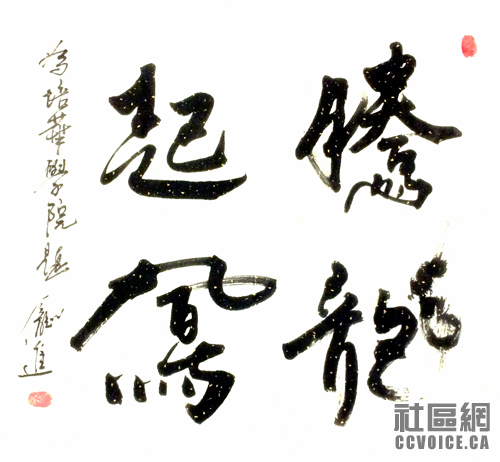 騰龍
起鳳
為培華學院題 進
社區網
CCVOICE.CA